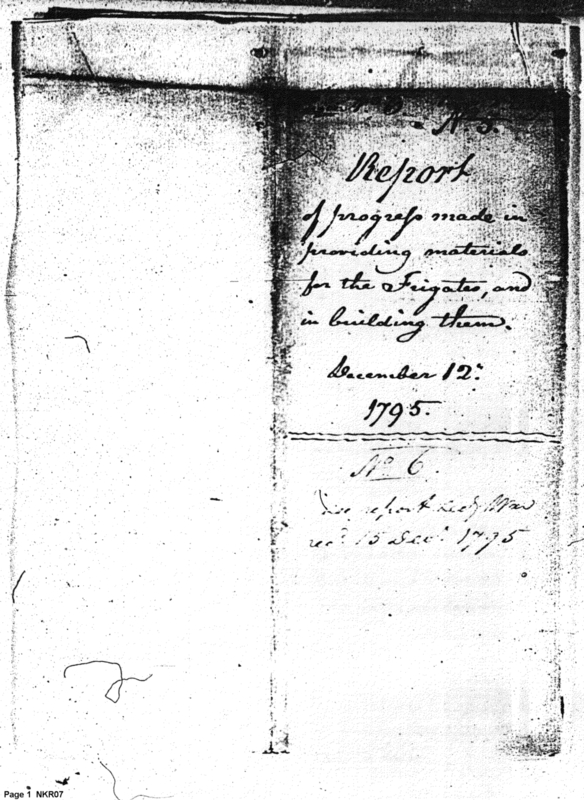 No 5.
Report
of progress made in
providing materials
for the Frigates, and
in building them.
December 12:
1795.
No 6
report Secy War
recd 15 Decr 1795
Page 1 NKR07